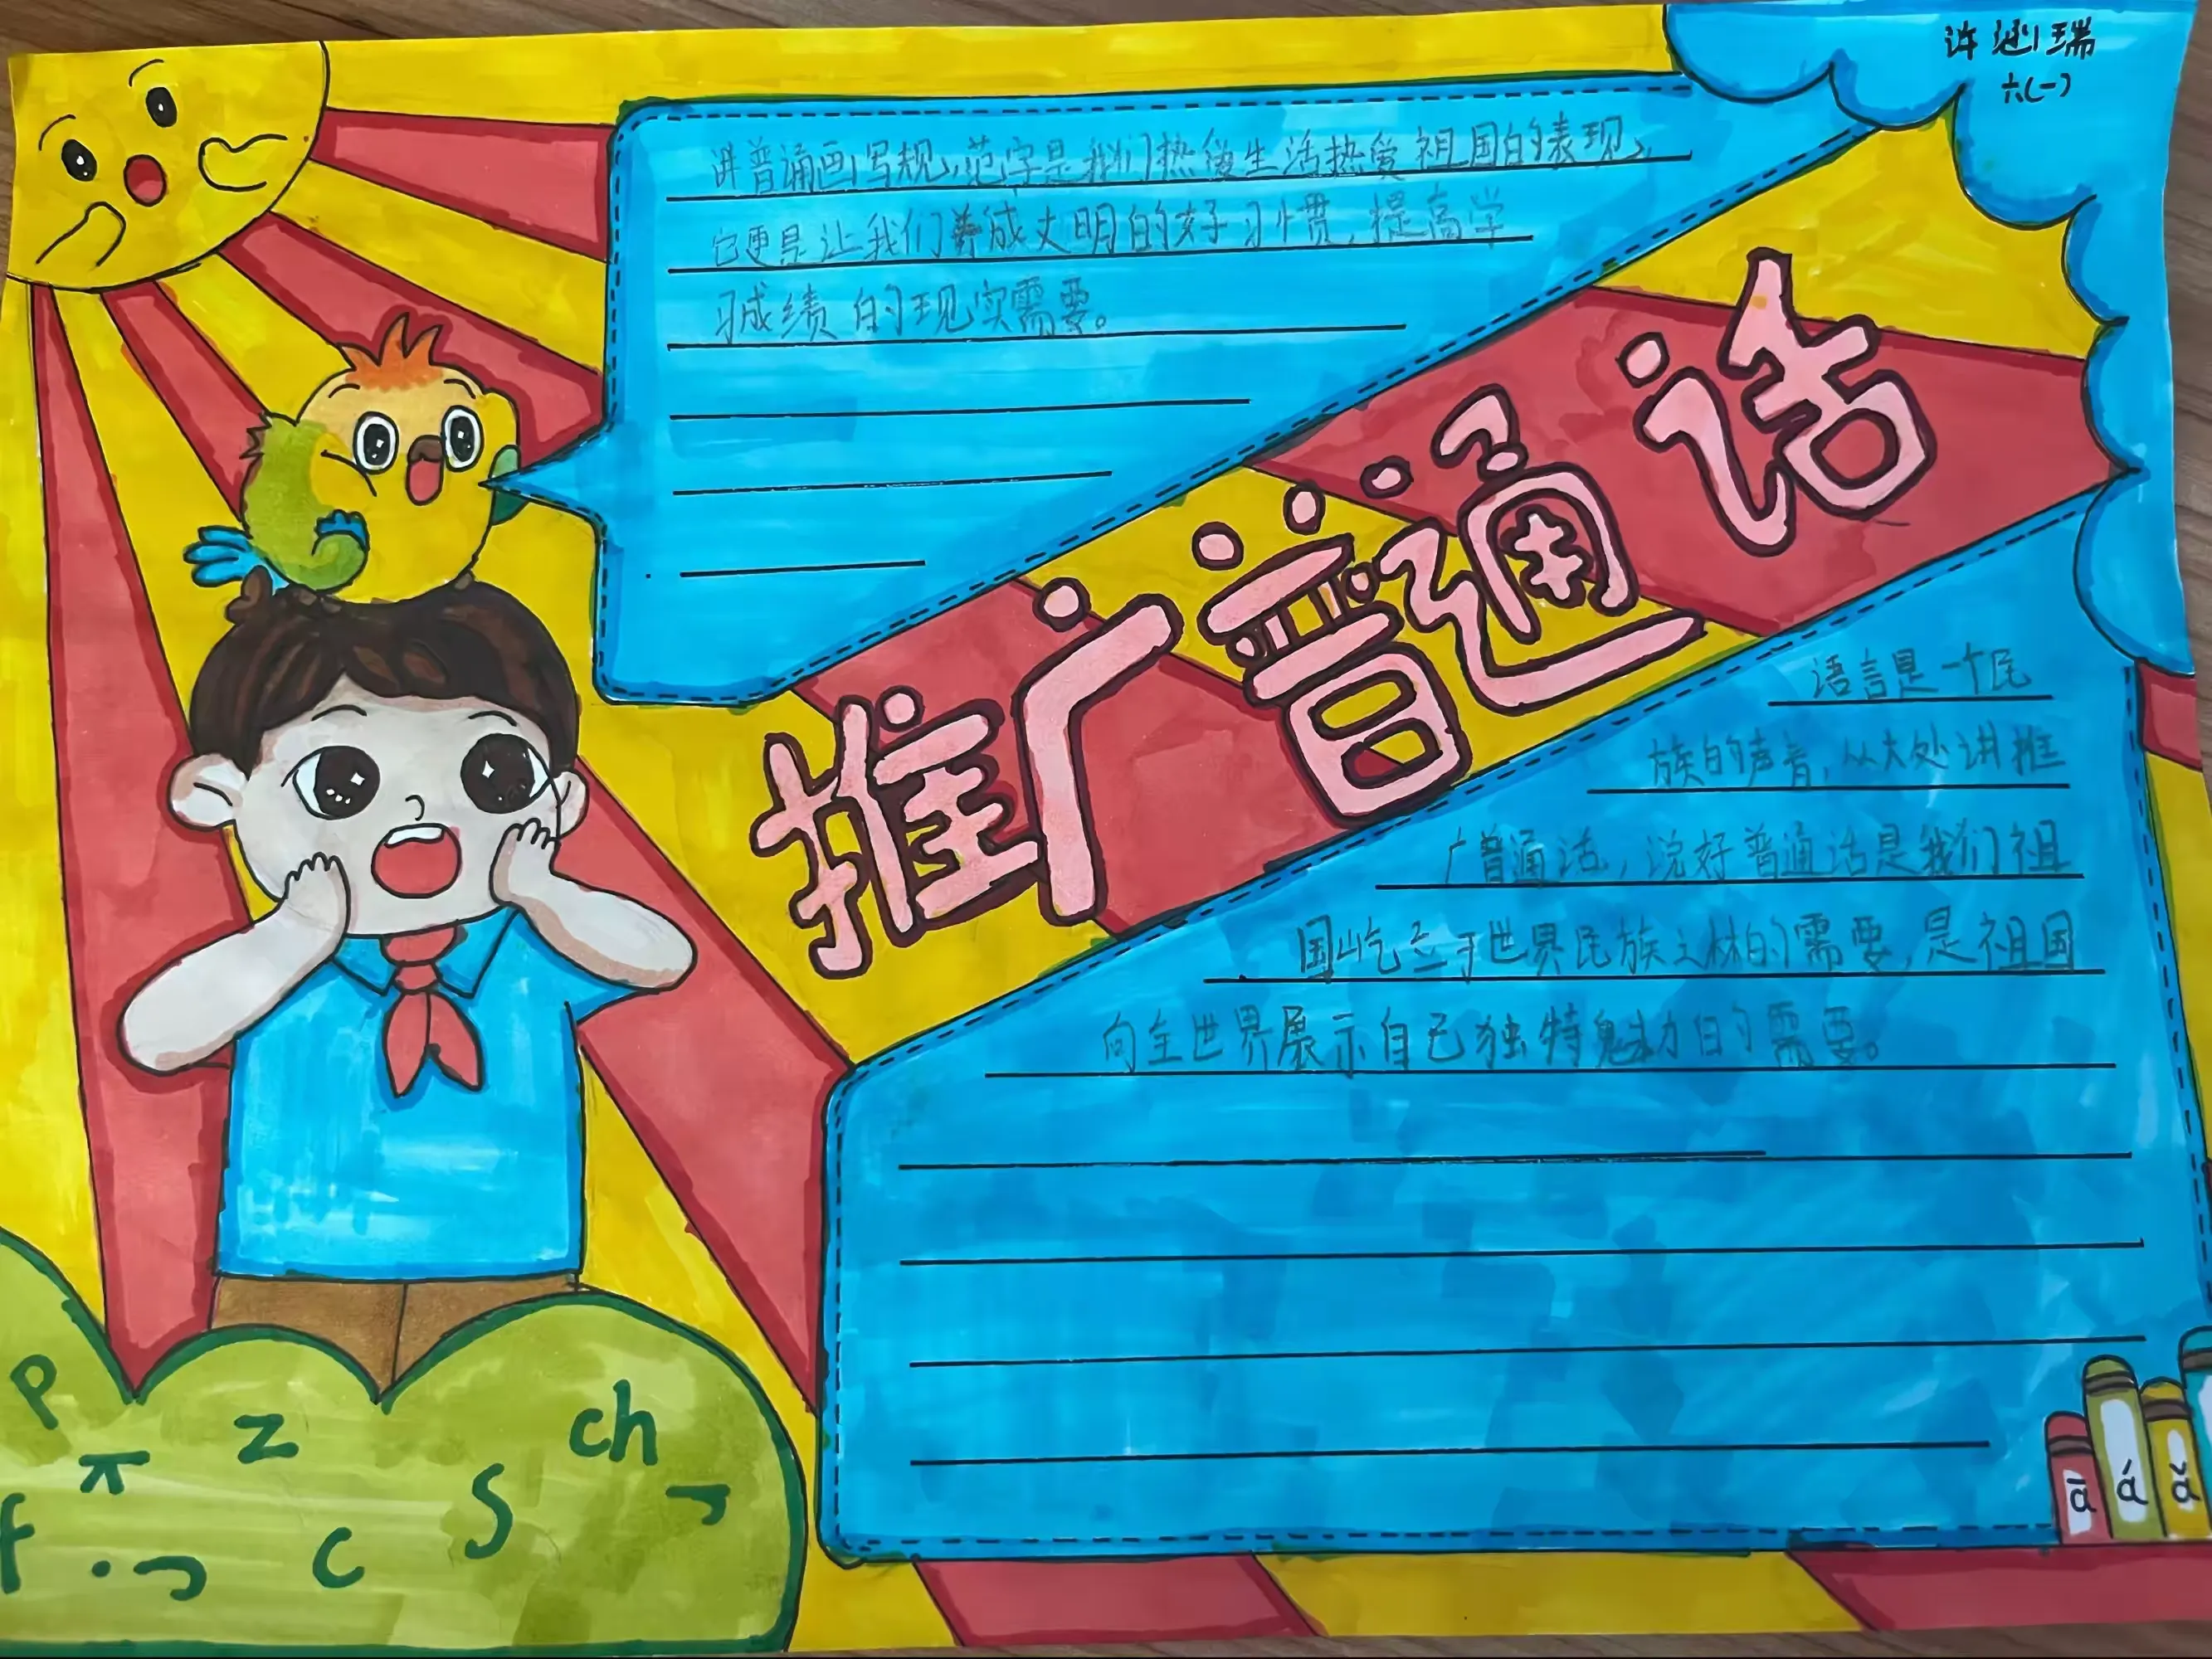 许 瑞
六(一)
讲普通画写规范字是我们热爱生活热爱祖国的表现,
它更是让我们养成文明的好习惯,提高学
习成绩的现实需要。
推广普通话
语言是一个民
族的声音,从大处讲推
广普通话,说好普通话是我们祖
国屹立于世界民族之林的需要,是祖国
向全世界展示自己独特魅力的需要。
p
z
ch
f
c
s
ā á ǎ